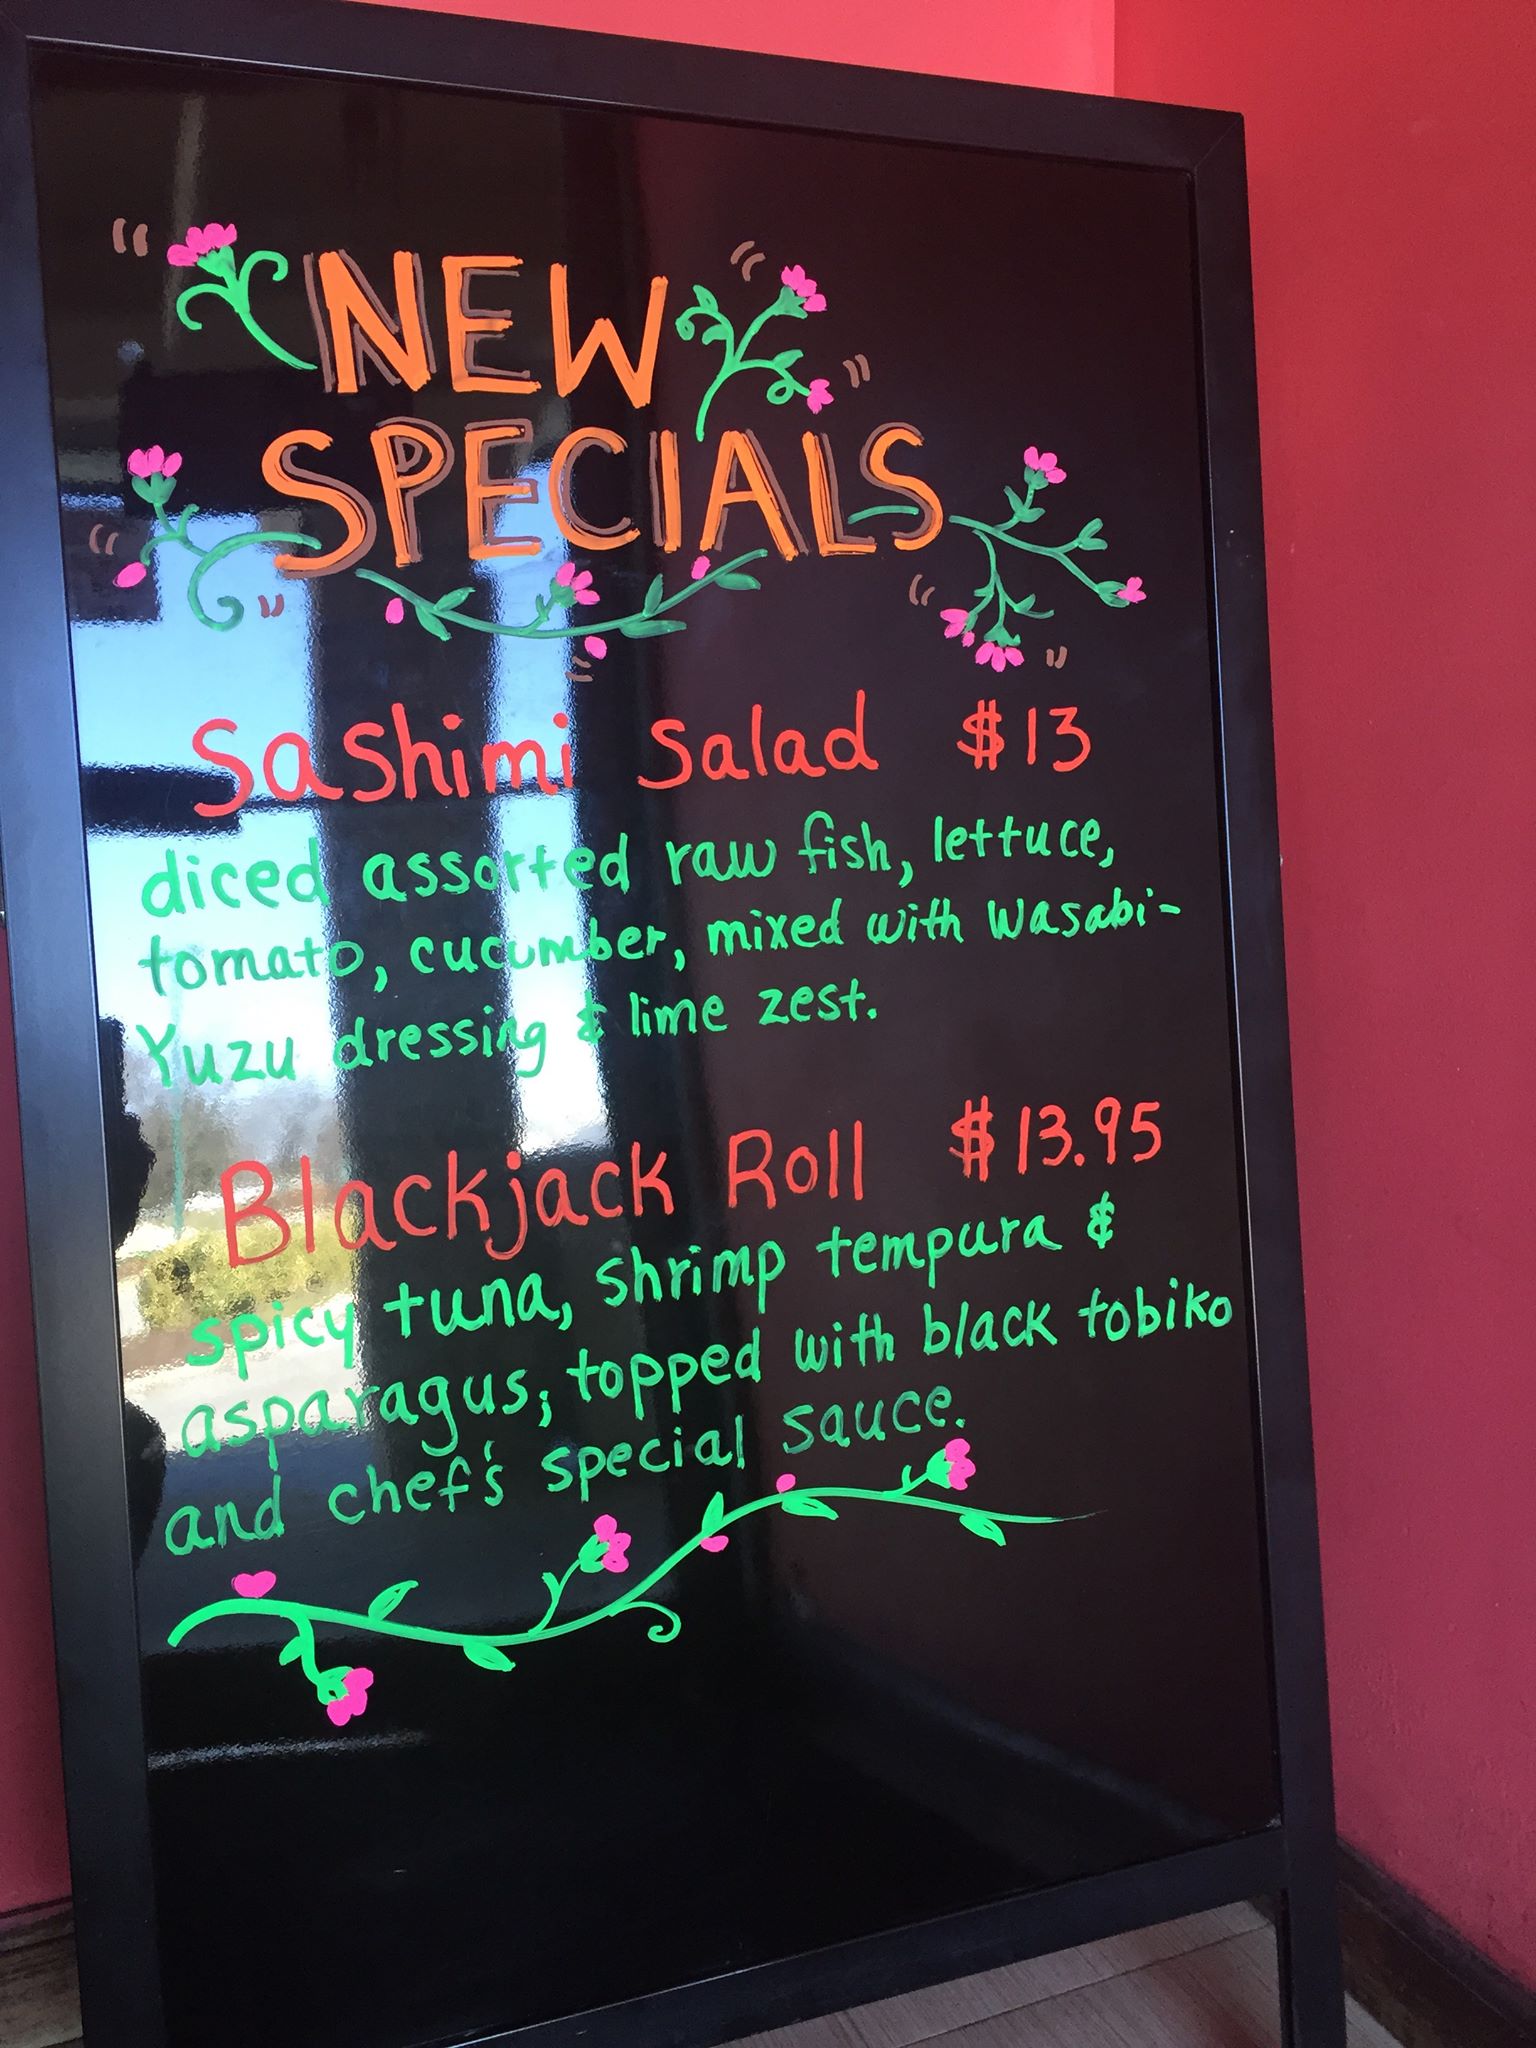 NEW
SPECIALS
Sashimi Salad $13
diced assorted raw fish, lettuce,
tomato, cucumber, mixed with wasabi-
Yuzu dressing & lime zest.
Blackjack Roll $13.95
spicy tuna, shrimp tempura &
asparagus, topped with black tobiko
and chef's special sauce.